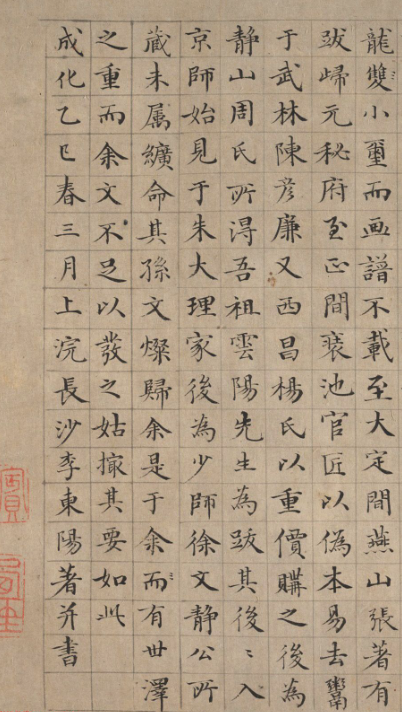 龍雙小璽而画譜不載至大定間燕山張著有
跋歸元秘府至正間裝池官匠以偽本易去鬻
于武林陳彦廉又西昌楊氏以重價購之後為
静山周氏所得吾祖雲陽先生為跋其後〻入
京師始見于朱大理家後為少師徐文靜公所
蔵未属纊命其孫文燦歸余是于余而有世澤
之重而余文不足以發之姑撮其要如此
成化乙巳春三月上浣長沙李東陽著并書